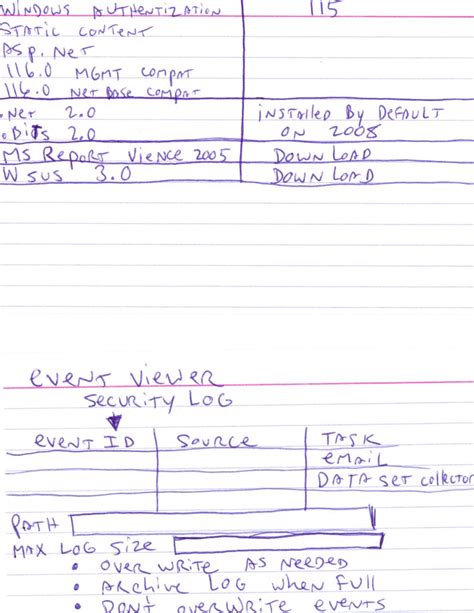 WINDOWS AUTHENTIZATION 115
STATIC CONTENT
ASP. NET
116.0 MGMT COMPAT
116.0 NET BASE COMPAT
.NET 2.0 INSTALLED BY DEFAULT
.BITS 2.0 ON 2008
MS REPORT VIENCE 2005 DOWNLOAD
WSUS 3.0 DOWNLOAD
EVENT VIEWER
SECURITY LOG
EVENT ID SOURCE TASK
EMAIL
DATA SET COLLECTOR
PATH
MAX LOG SIZE
• OVERWRITE AS NEEDED
• ARCHIVE LOG WHEN FULL
• DONT OVERWRITE EVENTS